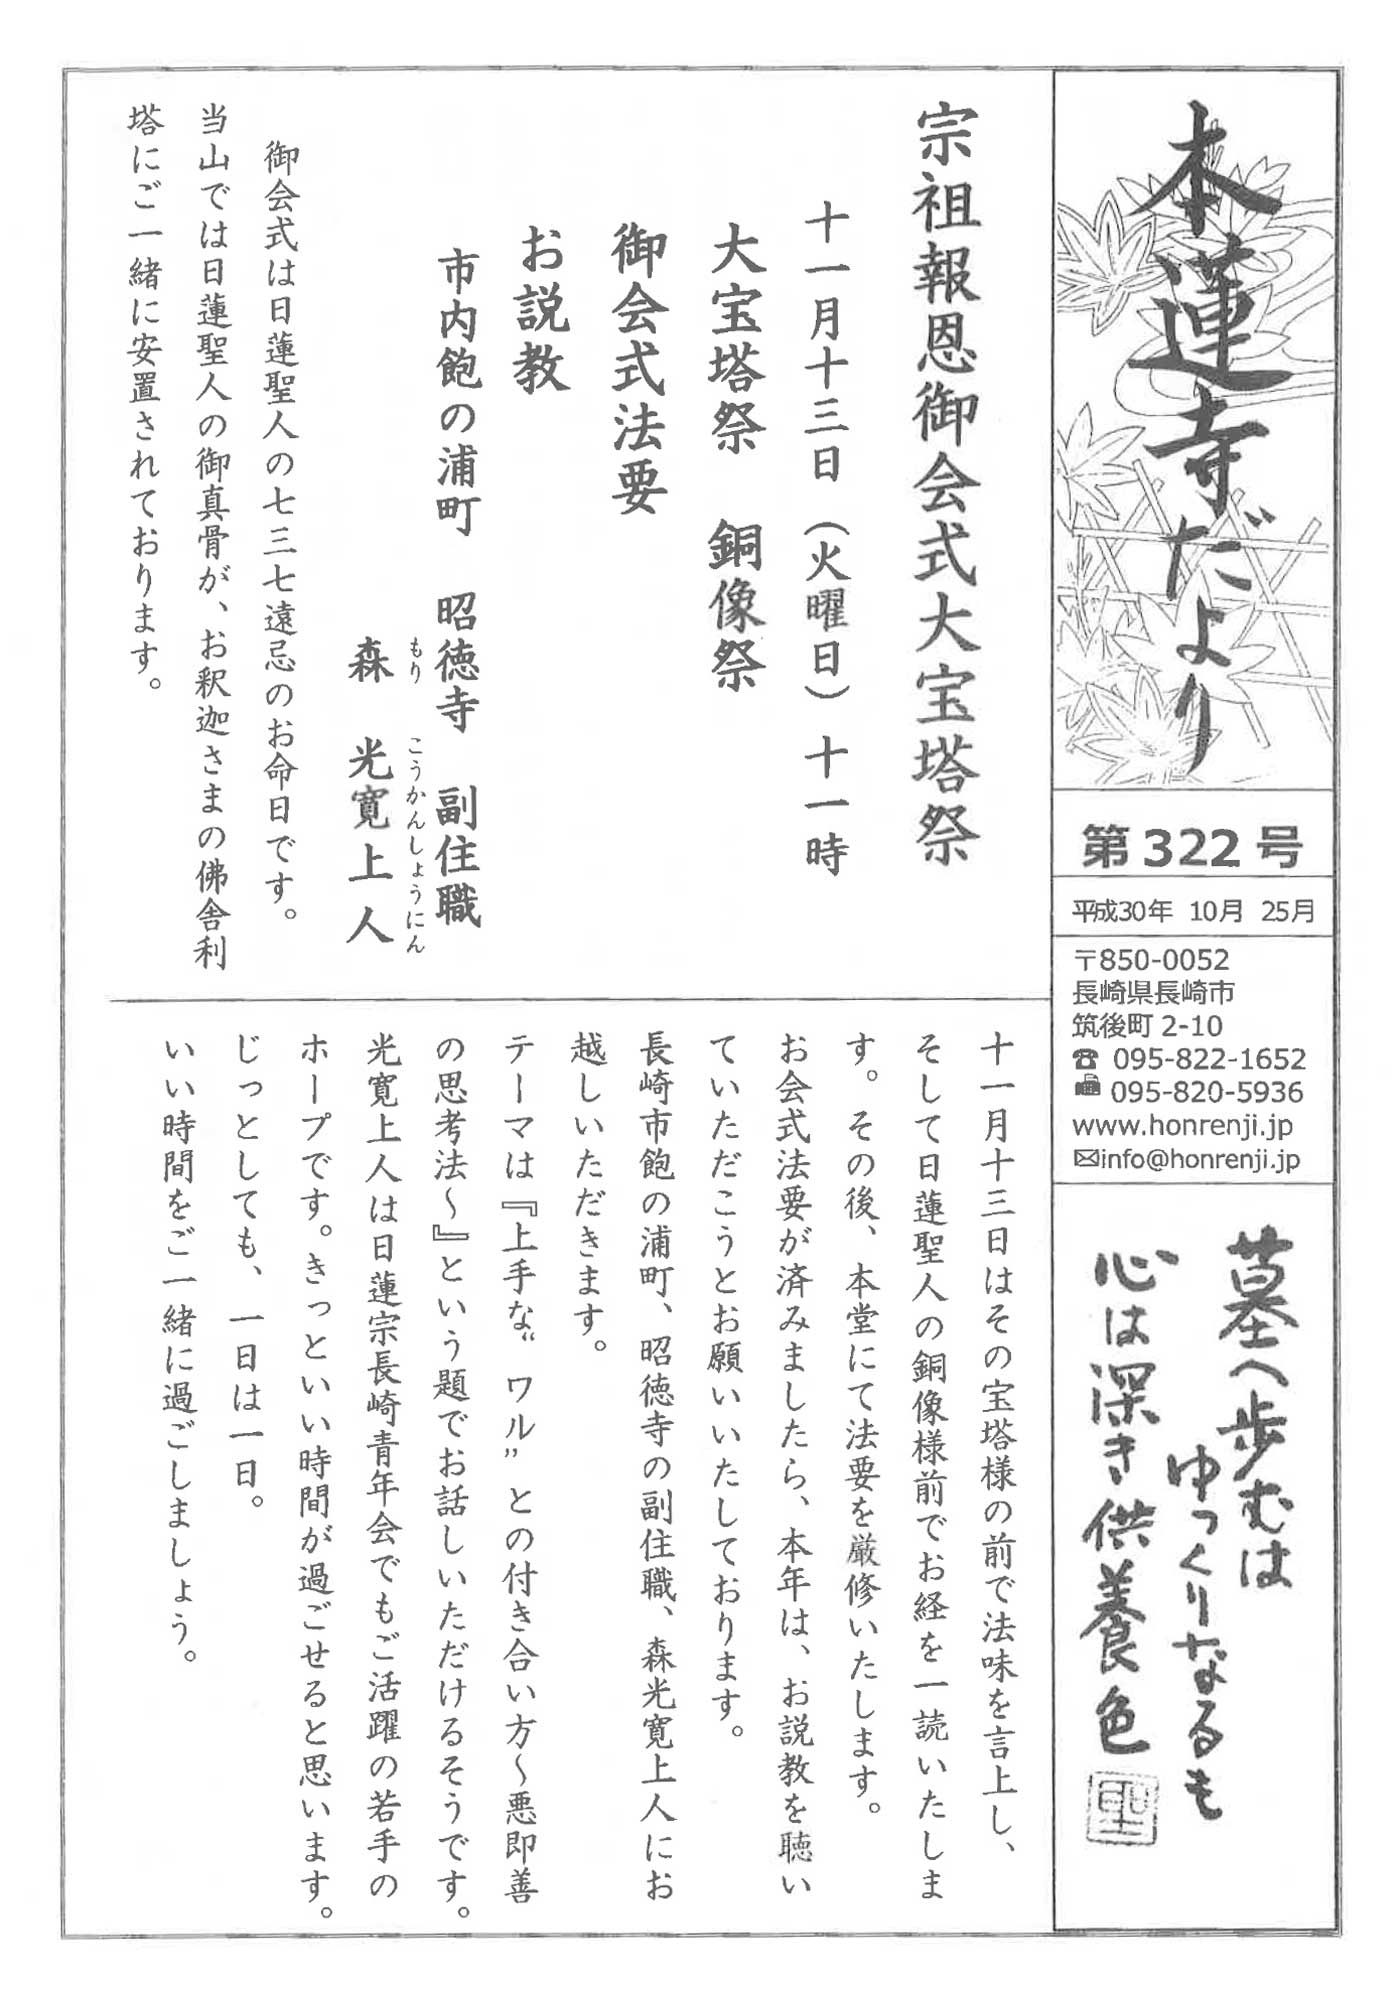 本蓮寺だより
第322号
平成30年 10月 25月
〒850-0052
長崎県長崎市
筑後町 2-10
☎ 095-822-1652
095-820-5936
www.honrenji.jp
✉info@honrenji.jp
墓へ歩むは
ゆっくりなるも
心は深き供養色
聖
宗祖報恩御会式大宝塔祭
十一月十三日（火曜日）十一時
大宝塔祭　銅像祭
御会式法要
お説教
市内飽の浦町　昭徳寺　副住職
もり　こうかんしょうにん
森　光寛上人
御会式は日蓮聖人の七三七遠忌のお命日です。
当山では日蓮聖人の御真骨が、お釈迦さまの佛舎利
塔にご一緒に安置されております。
十一月十三日はその宝塔様の前で法味を言上し、
そして日蓮聖人の銅像様前でお経を一読いたしま
す。その後、本堂にて法要を厳修いたします。
お会式法要が済みましたら、本年は、お説教を聴い
ていただこうとお願いいたしております。
長崎市飽の浦町、昭徳寺の副住職、森光寛上人にお
越しいただきます。
テーマは『上手な〝ワル〟との付き合い方～悪即善
の思考法～』という題でお話しいただけるそうです。
光寛上人は日蓮宗長崎青年会でもご活躍の若手の
ホープです。きっといい時間が過ごせると思います。
じっとしても、一日は一日。
いい時間をご一緒に過ごしましょう。